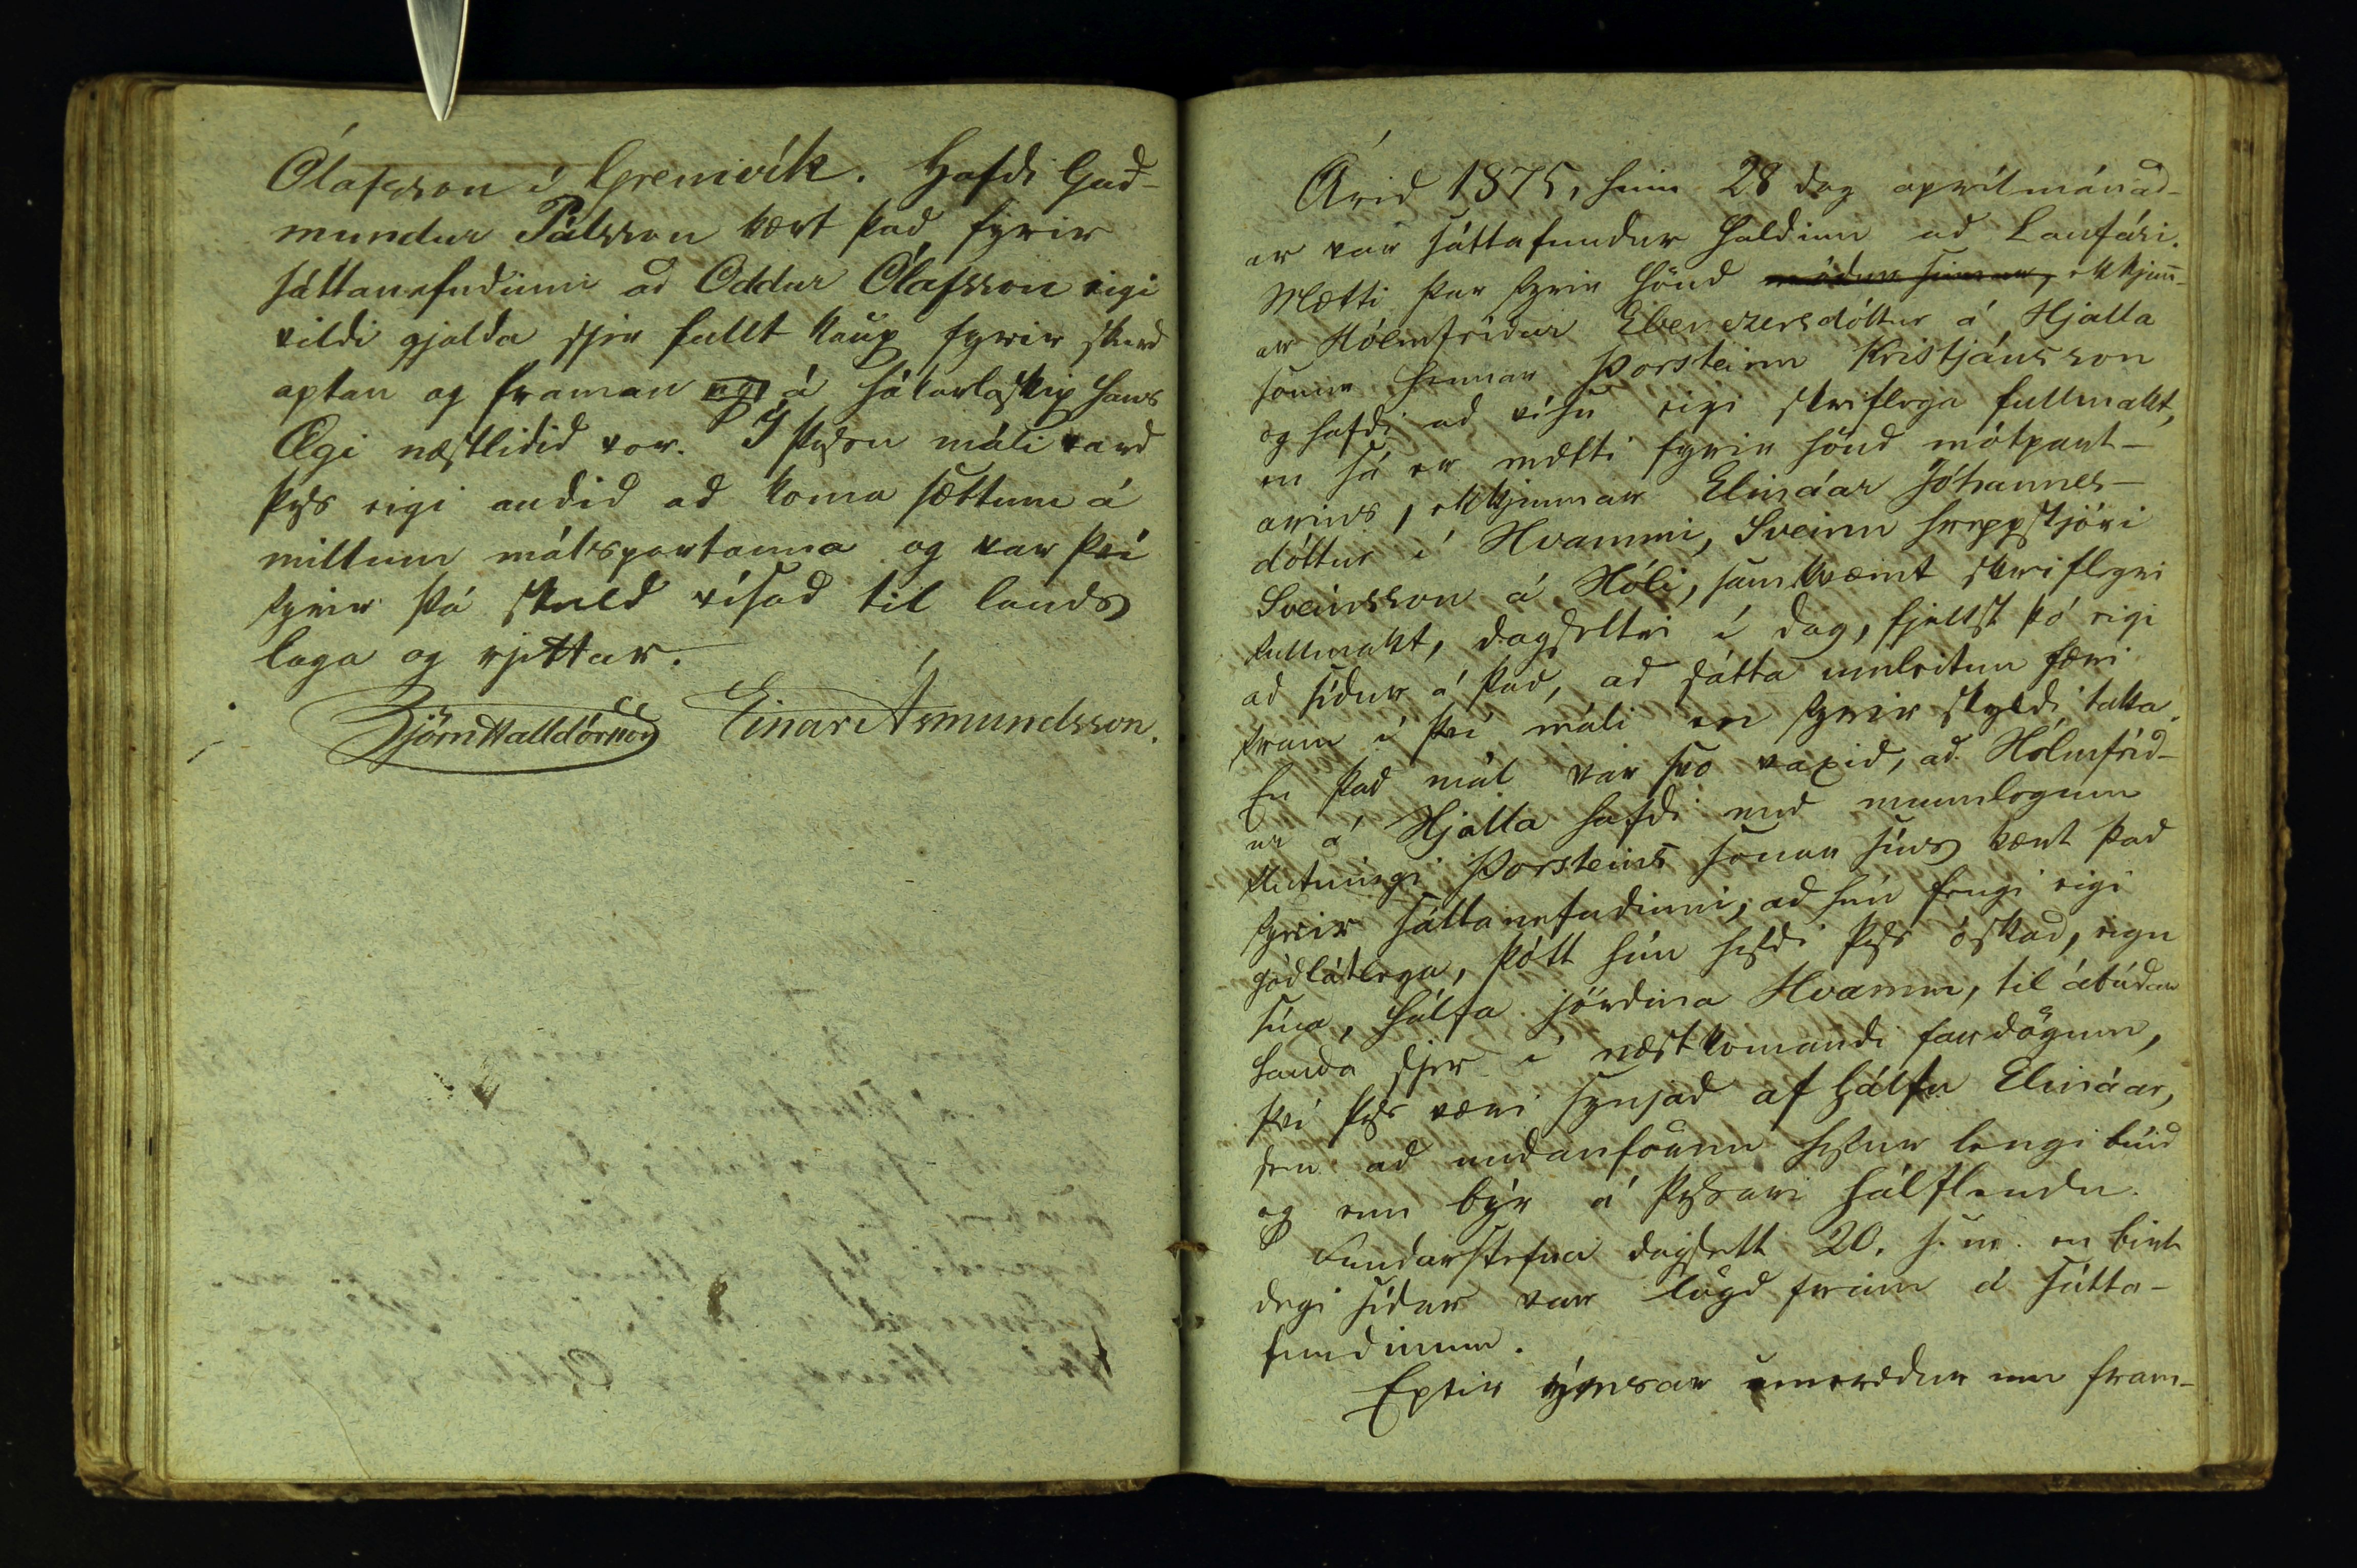 Ólafsson í Grenivík. Hafdi Gud-
mundur Pálsson kært þad fyrir
sáttanefndinni ad Oddur Ólafsson eigi
vildi gjalda sjer fullt kaup fyrir skurd
aptan og framan á hákarlaskip hans
Ægi næstlidid vor. Í þessu máli vard
þess eigi audid ad koma sættum á
millum málspartanna og var því
fyrir þá skuld vísad til lands
laga og rjettar.
Björn Halldórsson Einar Ásmundsson.
Árid 1875, hinn 28 dag aprílmánad-
ar var sáttafundur haldinn ad Laufási.
Mætti þar fyrir hönd módur sinnar, ekkjunn-
ar Hólmfrídar Ebenezersdóttur á Hjalla
sonur hennar Þorsteinn Kristjánsson
og hafdi ad vísu eigi skriflega fullmakt,
en sá er mætti fyrir hönd mótpart-
arins, ekkjunnar Elináar Jóhannes-
dóttur í Hvammi, Sveinn hreppstjóri
Sveinsson á Hóli, samkvæmt skriflegri
fullmakt, dagsettri í dag, fjellst þó eigi
ad sídur á þad, ad sátta umleitun færi
fram í því máli er fyrir skyldi taka.
En þad mál var svo vaxid, ad Hólmfríd-
ur á Hjalla hafdi med munnlegum
flutningi Þorsteins sonar síns kært þad
fyrir sáttanefndinni, ad hún fengi eigi
gódlátlega, þótt hún hefdi þess óskad, eign
sína, hálfa jördina Hvamm, til ábúdar
handa sjer í næstkomandi fardögum,
því þess væri synjad af hálfu Elináar,
sem ad undanförnu hefur lengi búid
og enn býr á þessari hálflendu.
Fundarstefna dagsett 20. þ. m. en birt
degi sídar var lögd fram á sátta-
fundinum.
Eptir ýmsar umrædur um fram-